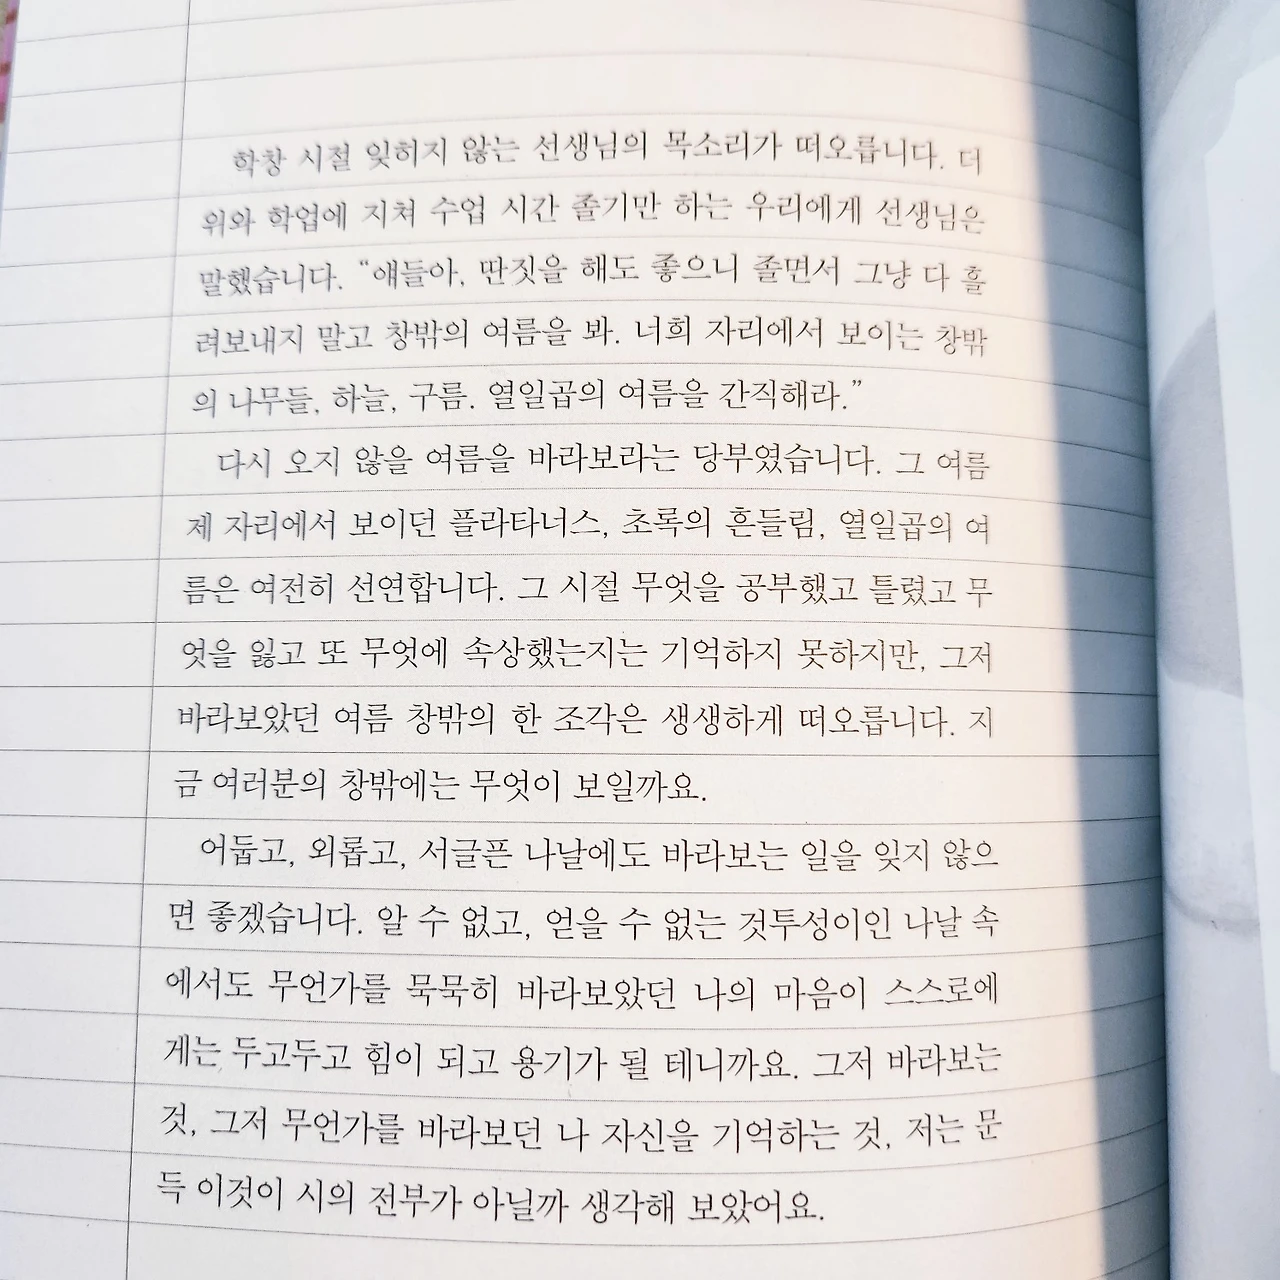 학창 시절 잊히지 않는 선생님의 목소리가 떠오릅니다. 더
위와 학업에 지쳐 수업 시간 졸기만 하는 우리에게 선생님은
말했습니다. “얘들아, 딴짓을 해도 좋으니 졸면서 그냥 다 흘
려보내지 말고 창밖의 여름을 봐. 너희 자리에서 보이는 창밖
의 나무들, 하늘, 구름. 열일곱의 여름을 간직해라.”
다시 오지 않을 여름을 바라보라는 당부였습니다. 그 여름
제 자리에서 보이던 플라타너스, 초록의 흔들림, 열일곱의 여
름은 여전히 선연합니다. 그 시절 무엇을 공부했고 틀렸고 무
엇을 잃고 또 무엇에 속상했는지는 기억하지 못하지만, 그저
바라보았던 여름 창밖의 한 조각은 생생하게 떠오릅니다. 지
금 여러분의 창밖에는 무엇이 보일까요.
어둡고, 외롭고, 서글픈 나날에도 바라보는 일을 잊지 않으
면 좋겠습니다. 알 수 없고, 얻을 수 없는 것투성이인 나날 속
에서도 무언가를 묵묵히 바라보았던 나의 마음이 스스로에
게는 두고두고 힘이 되고 용기가 될 테니까요. 그저 바라보는
것, 그저 무언가를 바라보던 나 자신을 기억하는 것, 저는 문
득 이것이 시의 전부가 아닐까 생각해 보았어요.